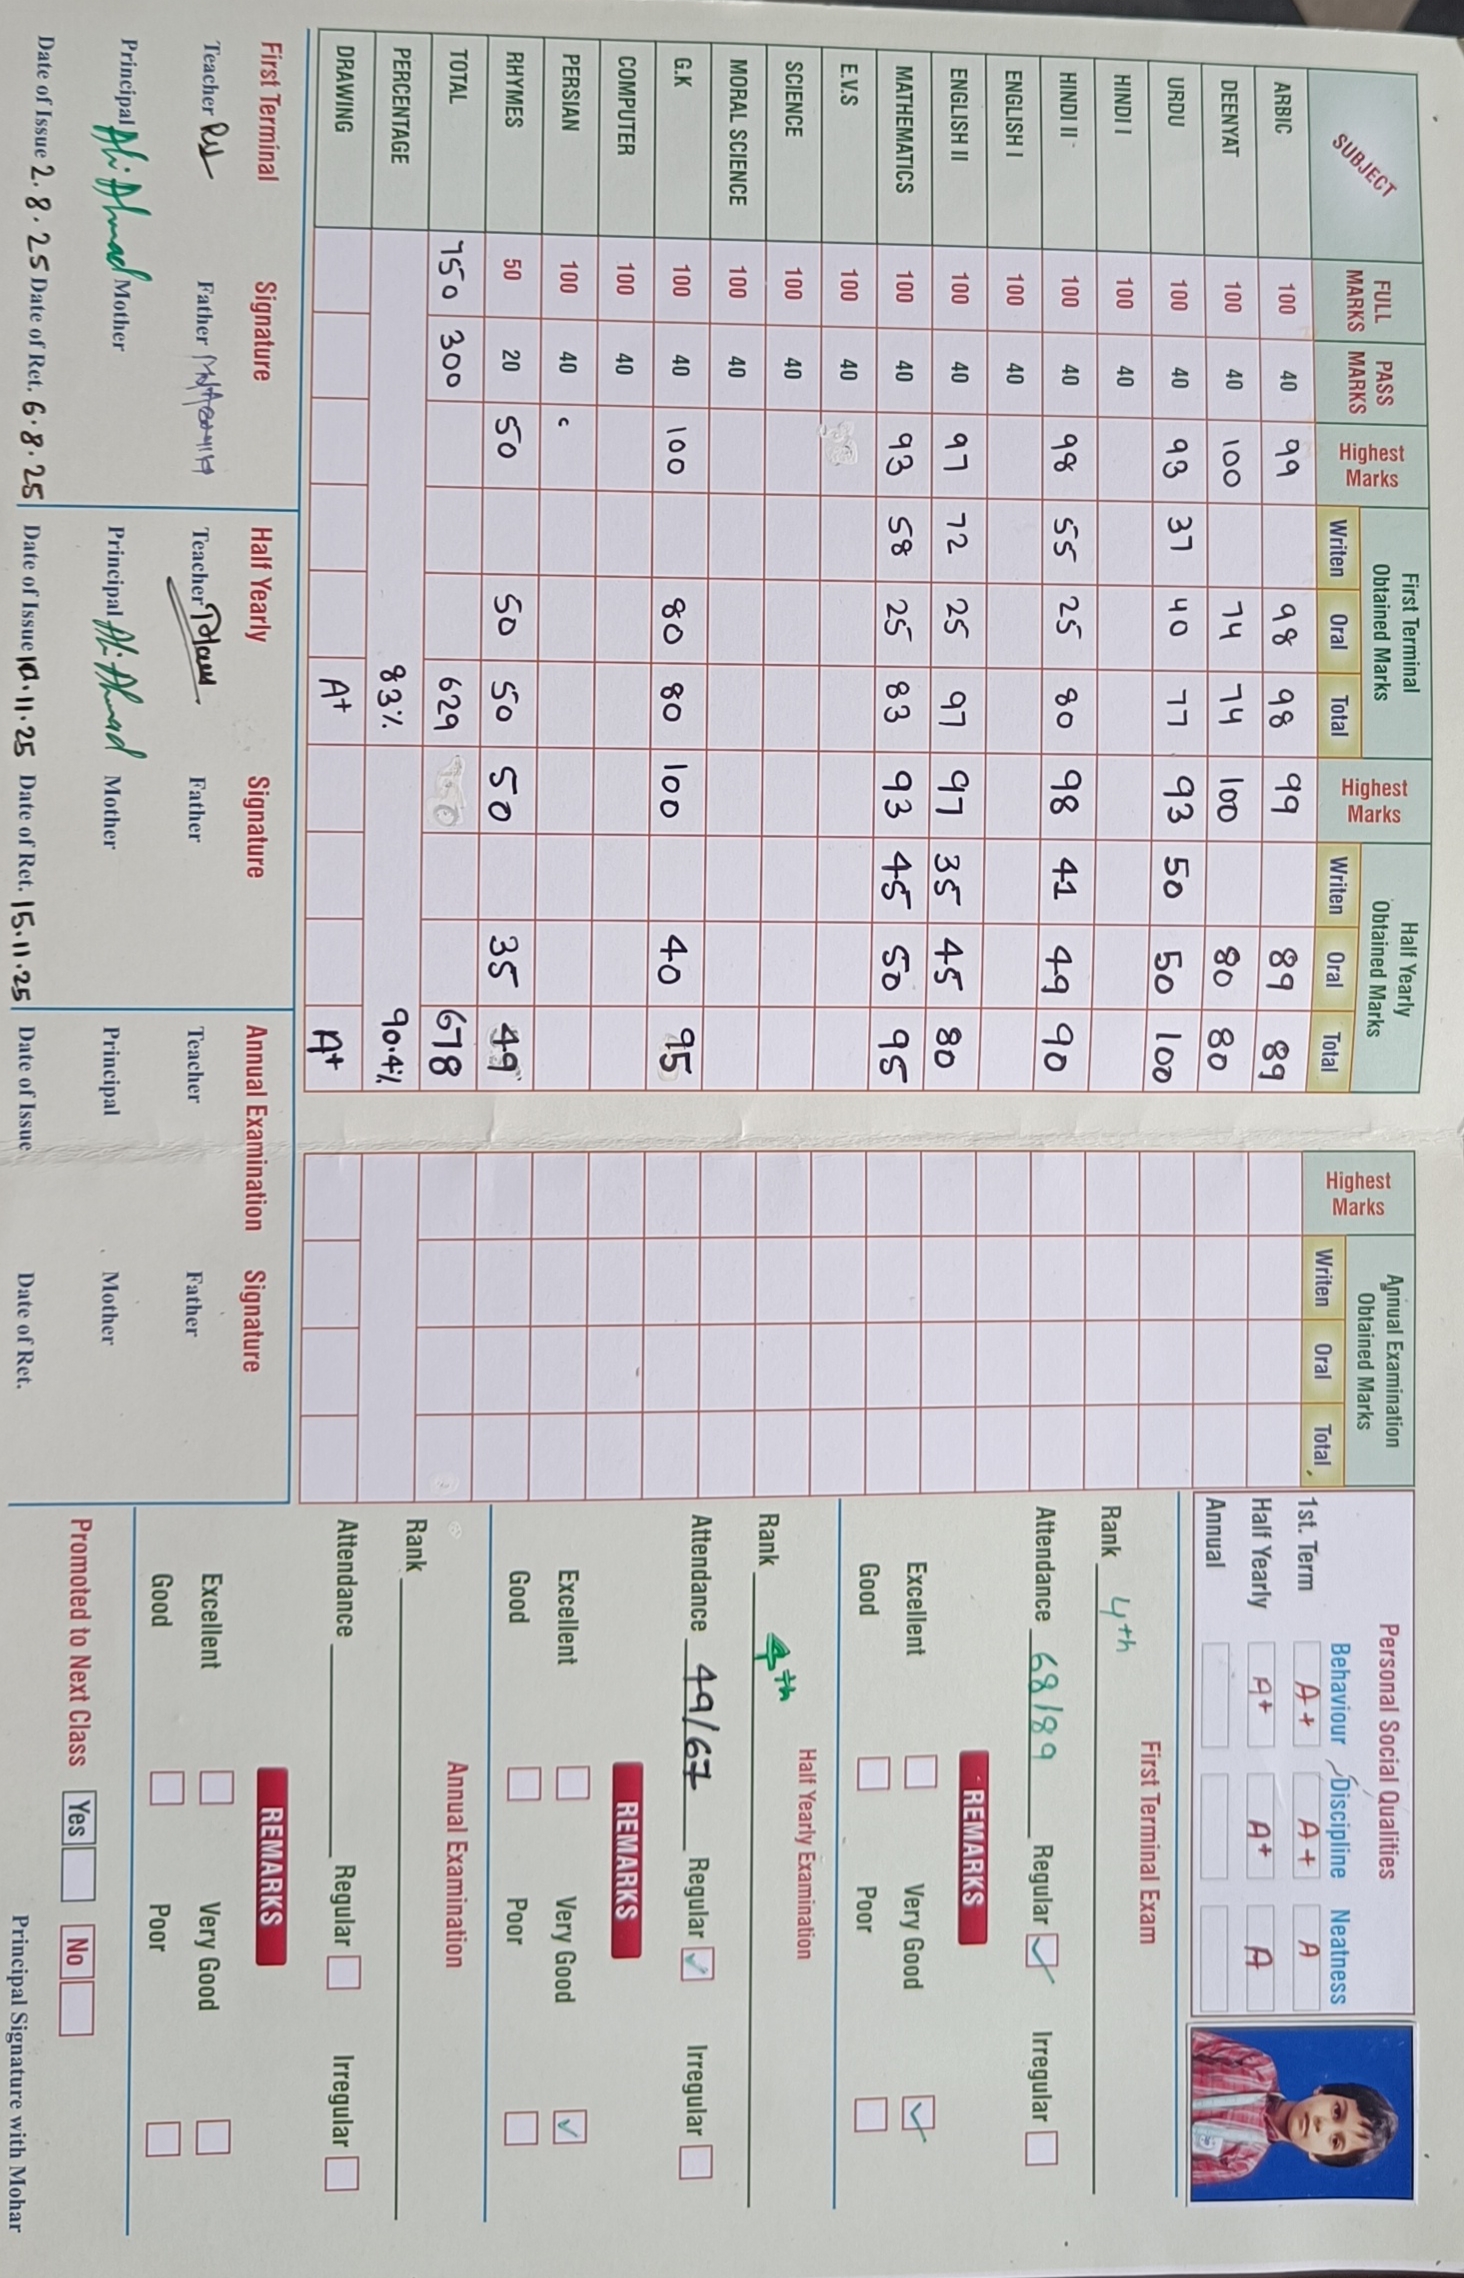 SUBJECT FULL MARKS PASS MARKS Highest Marks First Terminal Obtained Marks Writen Oral Total Highest Marks Half Yearly Obtained Marks Writen Oral Total Highest Marks Annual Examination Obtained Marks Writen Oral Total
ARBIC 100 40 99 98 98 99 89 89
DEENYAT 100 40 100 74 74 100 80 80
URDU 100 40 93 37 40 77 93 50 50 100
HINDI I 100 40
HINDI II 100 40 98 55 25 80 98 41 49 90
ENGLISH I 100 40
ENGLISH II 100 40 97 72 25 97 97 35 45 80
MATHEMATICS 100 40 93 58 25 83 93 45 50 95
E.V.S 100 40
SCIENCE 100 40
MORAL SCIENCE 100 40
G.K 100 40 100 80 80 100 40 95
COMPUTER 100 40
PERSIAN 100 40
RHYMES 50 20 50 50 50 50 35 49
TOTAL 750 300 629 678
PERCENTAGE 83% 90.4%
DRAWING A+ A+
First Terminal Signature
Teacher Father
Principal Ali Ahmad Mother
Date of Issue 2.8.25 Date of Ret. 6.8.25
Half Yearly Signature
Teacher Father
Principal Ali Ahmad Mother
Date of Issue 10.11.25 Date of Ret. 15.11.25
Annual Examination Signature
Teacher Father
Principal Mother
Date of Issue Date of Ret.
Personal Social Qualities
Behaviour Discipline Neatness
1st. Term A+ A+ A
Half Yearly A+ A+ A
Annual
First Terminal Exam
Rank 4th
Attendance 68/89 Regular Irregular
REMARKS
Excellent Very Good
Good Poor
Half Yearly Examination
Rank 4th
Attendance 49/67 Regular Irregular
REMARKS
Excellent Very Good
Good Poor
Annual Examination
Rank
Attendance Regular Irregular
REMARKS
Excellent Very Good
Good Poor
Promoted to Next Class Yes No
Principal Signature with Mohar